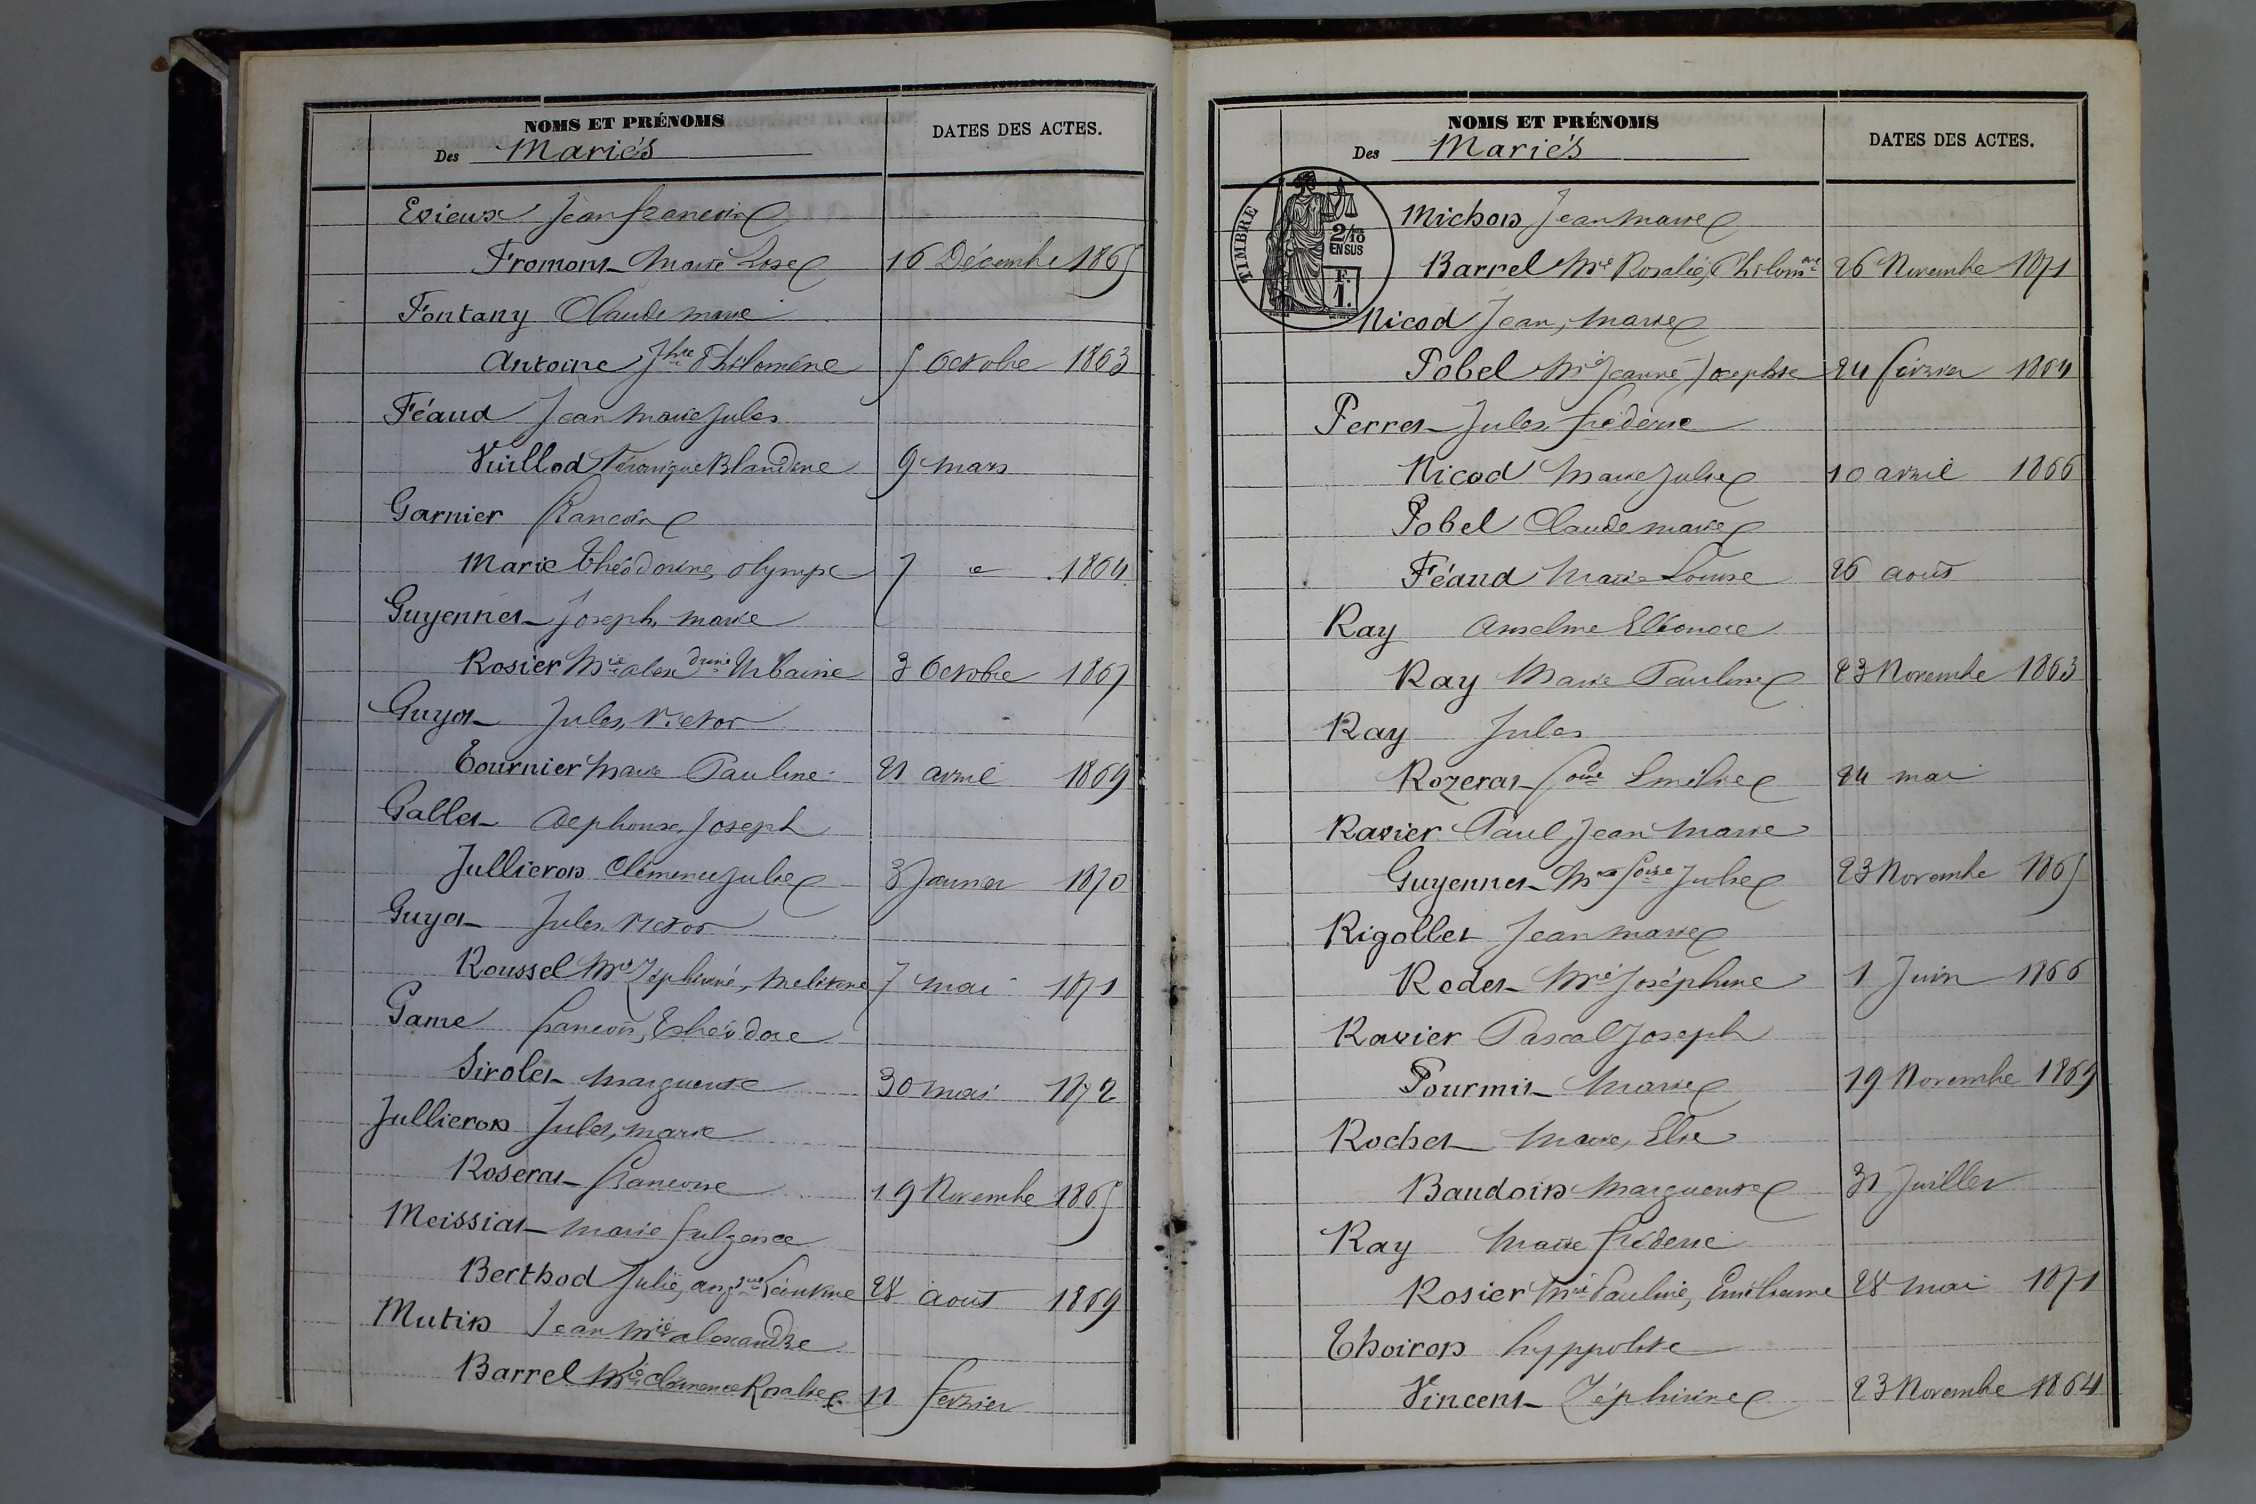 NOMS ET PRÉNOMS
Des Mariés
DATES DES ACTES.
Evieux Jean françois
Fromont Marie Rose 16 Décembre 1865
Fontany Claude marie
Antoine Jhte Philomène 5 Octobre 1863
Féaud Jean Marie Jules
Vuillod Véronique Blandine 9 mars
Garnier françois
Marie théodorine, olympe 7 " 1864
Guyennet Joseph, marie
Rosier Mie alexdrine Urbanie 3 Octobre 1867
Guyot Jules, Victor
Tournier Marie Pauline 21 avril 1869
Gallet Alphonse, Joseph
Jullieron Clémence Julie 3 Janvier 1870
Guyot Jules Victor
Roussel Mie Zéphirine, Melitine 7 mai 1871
Game françois, Théodore
Sirolet Marguerite 30 mai 1872
Jullieron Jules, marie
Roserat françoise 19 Novembre 1865
Meissiat marie fulgence
Berthod Julie, angque Léontine 28 aout 1869
Mutin Jean Mie alexandre
Barrel Mie Clémence Rosalie 11 fevrier
NOMS ET PRÉNOMS
Des Mariés
DATES DES ACTES.
TIMBRE
2/10
EN SUS
F.
1.
Michon Jean Marie
Barrel Mie Rosalie, Philomène 26 Novembre 1871
Nicod Jean, Marie
Pobel Mie Jeanne Josephte 24 fevrier 1864
Perret Jules, fréderic
Nicod Marie Julie 10 avril 1866
Pobel Claude marie
Féaud Marie Louise 26 août
Ray Anselme Eléonore
Ray Marie Pauline 23 Novembre 1863
Ray Jules
Rozerat foise Emélie 24 mai
Ravier Paul, Jean Marie
Guyennet Mie foise Julie 23 Novembre 1865
Rigollet Jean marie
Rodet Mie Joséphine 1 Juin 1866
Ravier Pascal Joseph
Pourmit Marie 19 Novembre 1869
Rochet Marie, Elie
Baudoin Marguerite 31 Juillet
Ray Marie fréderic
Rosier Mie Pauline, Emilienne 28 mai 1871
Thoiron hyppolite
Vincent Zéphirine 23 Novembre 1864